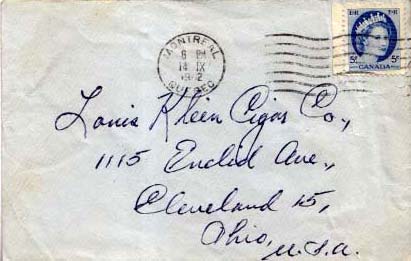 MONTREAL
6 PM
14 IX
QUEBEC
E II R E II R
5¢ CANADA 5¢
Louis Kleen Cigar Co.,
1115 Euclid Ave.,
Cleveland 15,
Ohio,
U.S.A.